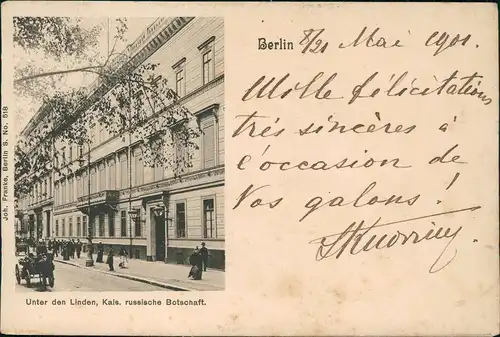 Berlin 8/21 Mai 901.
Mille félicitations
très sincères à
l'occasion de
Vos galons!
Joh. Franke, Berlin S. No. 518
Unter den Linden, Kais. russische Botschaft.